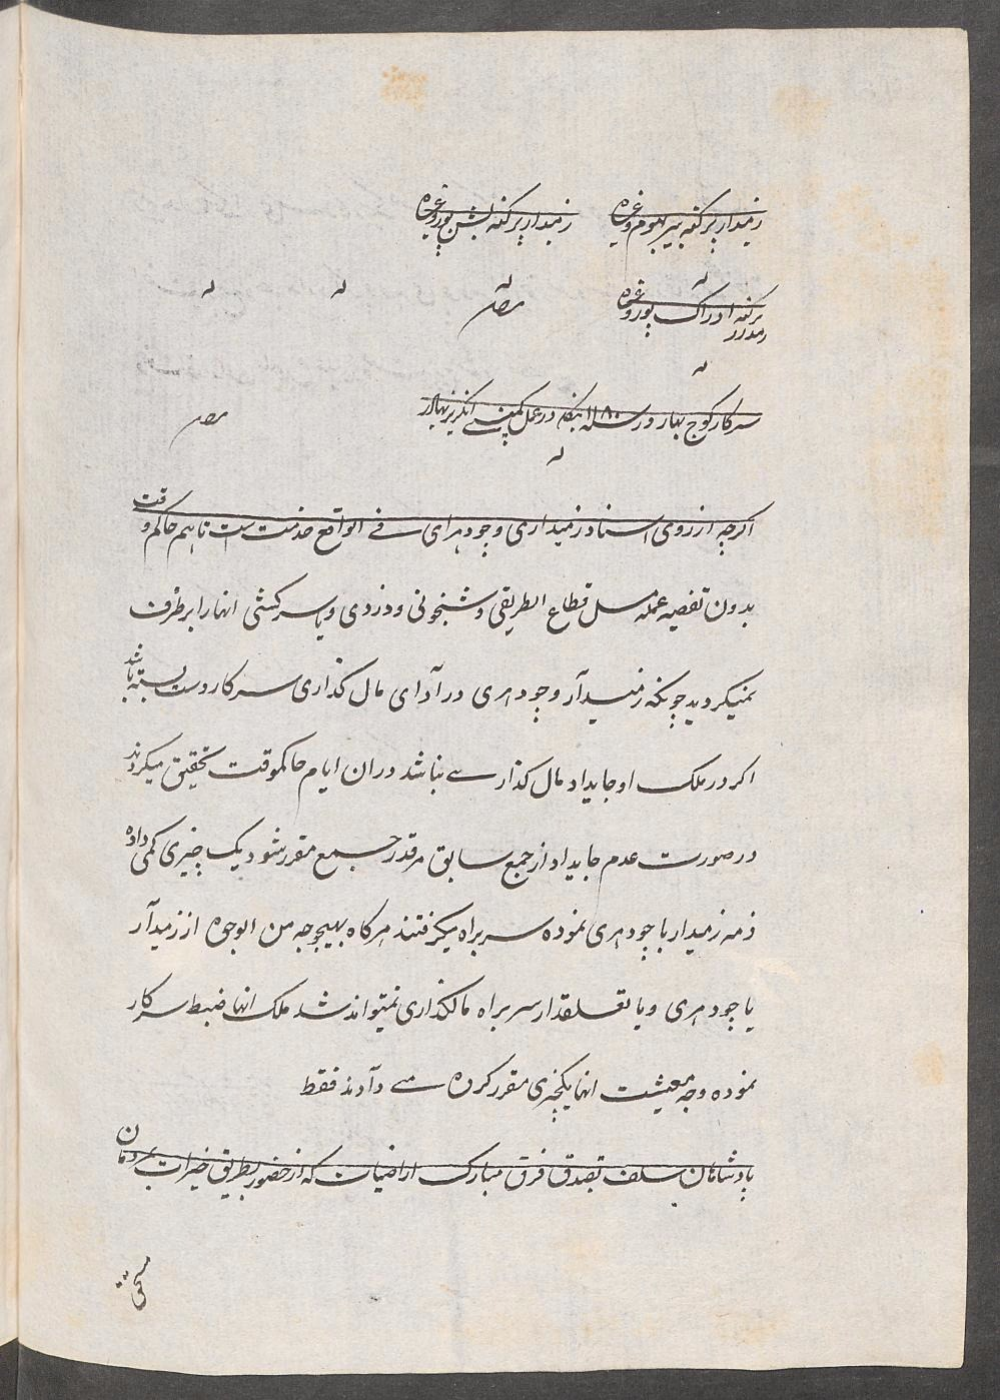 زمیندار پرکنه بیربهوم وغیره زمیندار پرکنه بشن پور وغیره
پرکنه ادراک پور وغیره
سرکار کوچ بهار در سنه ۱۱۸۰ بنکله در عمل کمپنی انکریز بهادر
اکرچه از روی اسناد زمینداری و چودهرای فی الواقع خدمت است تا هم حاکم وقت
بدون تقصیر عمده مثل قطاع الطریقی و شبخونی و دزدی و یا سرکشی انها را برطرف
نمیکردید چونکه زمیندار و چودهری در آدای مال کذاری سرکار دست بسته باشد
اکر در ملک او جایداد مال کذاری نباشد دران ایام حاکموقت تحقیق میکردند
در صورت عدم جایداد از جمع سابق هر قدر جمع مقرر شود یک چیزی کمی داده
ذمه زمیندار یا چودهری نموده سربراه میکرفتند هرکاه بهیچوجه من الوجوه از زمیندار
یا چودهری و یا تعلقدار سربراه مالکذاری نمیتواند شد ملک انها ضبط سرکار
نموده وجه معیشت انها یکچیزی مقرر کرده می دادند فقط
پادشاهان سلف بتصدق فرق مبارک اراضیات که از حضور بطریق خیرات بمردمان
مستحق